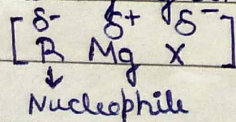 δ- δ+ δ-
[R Mg X]
↓
Nucleophile